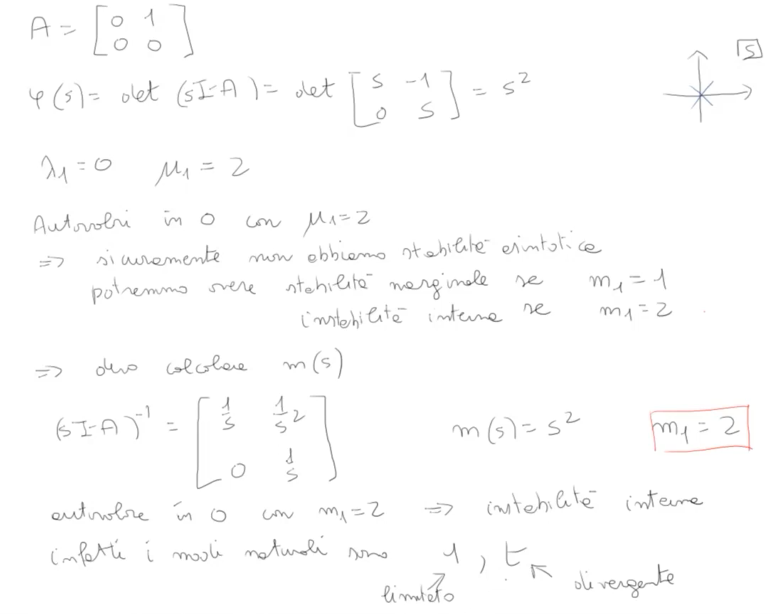 A = [0 1
0 0]
[s]
φ(s) = det (sI-A) = det [s -1
0 s] = s²
λ₁=0 μ₁ = 2
Autovalori in 0 con μ₁=2
=> sicuramente non abbiamo stabilità asintotica
potremmo avere stabilità marginale se m₁ = 1
instabilità interna se m₁ = 2
=> devo calcolare m(s)
(sI-A)⁻¹ = [1/s 1/s²
0 1/s] m(s) = s² m₁ = 2
autovalore in 0 con m₁=2 => instabilità interna
infatti i modi naturali sono 1 , t
limitato divergente